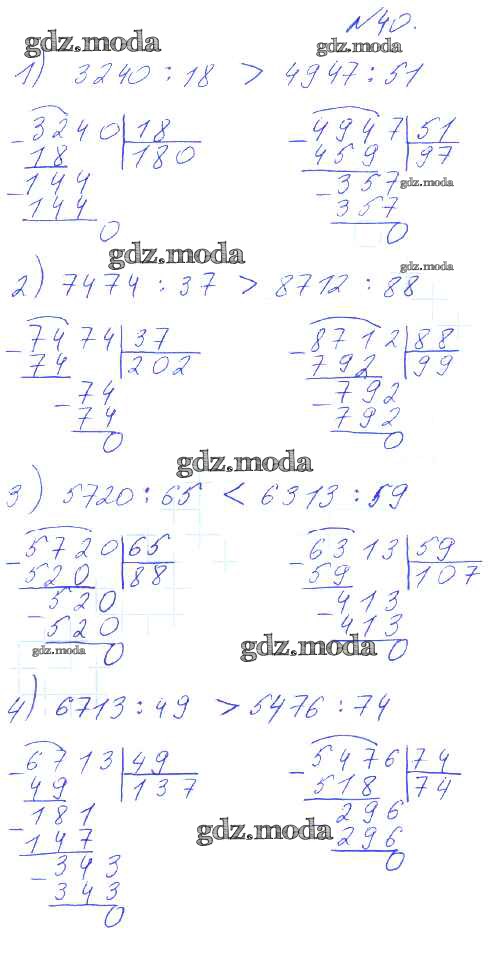 №40.
gdz.moda gdz.moda
1) 3240 : 18 > 4947 : 51
3240 18 4947 51
18 180 459 97
144 357 gdz.moda
144 357
0 0
gdz.moda gdz.moda
2) 7474 : 37 > 8712 : 88
7474 37 8712 88
74 202 792 99
74 792
74 792
0 0
gdz.moda
3) 5720 : 65 < 6313 : 59
5720 65 6313 59
520 88 59 107
520 413
520 413
0 0
gdz.moda gdz.moda
4) 6713 : 49 > 5476 : 74
6713 49 5476 74
49 137 518 74
181 296
147 296
gdz.moda
343 0
343
0